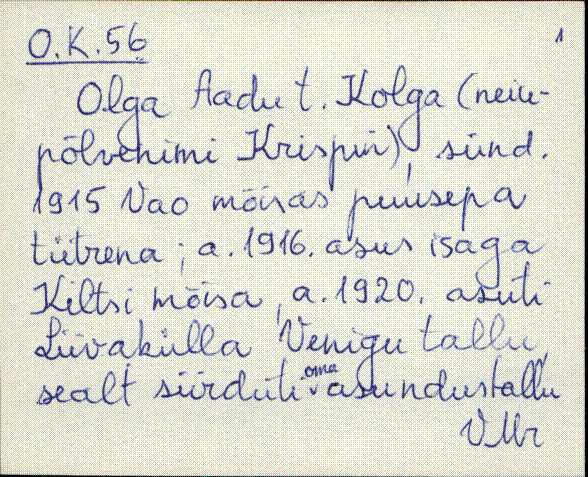 O.K.56 1
Olga Aadu t. Kolga (neiu-
põlvenimi Krispin), sünd.
1915 Vao mõisas puusepa
tütrena; a. 1916. asus isaga
Kiltsi mõisa, a. 1920. asuti
Liivakülla Venigu tallu,
sealt siirduti oma asundustallu
VMr